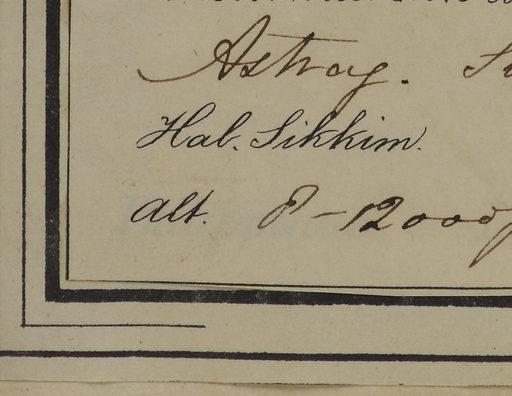 Astrag.
Hab. Sikkim.
Alt. 8-12000